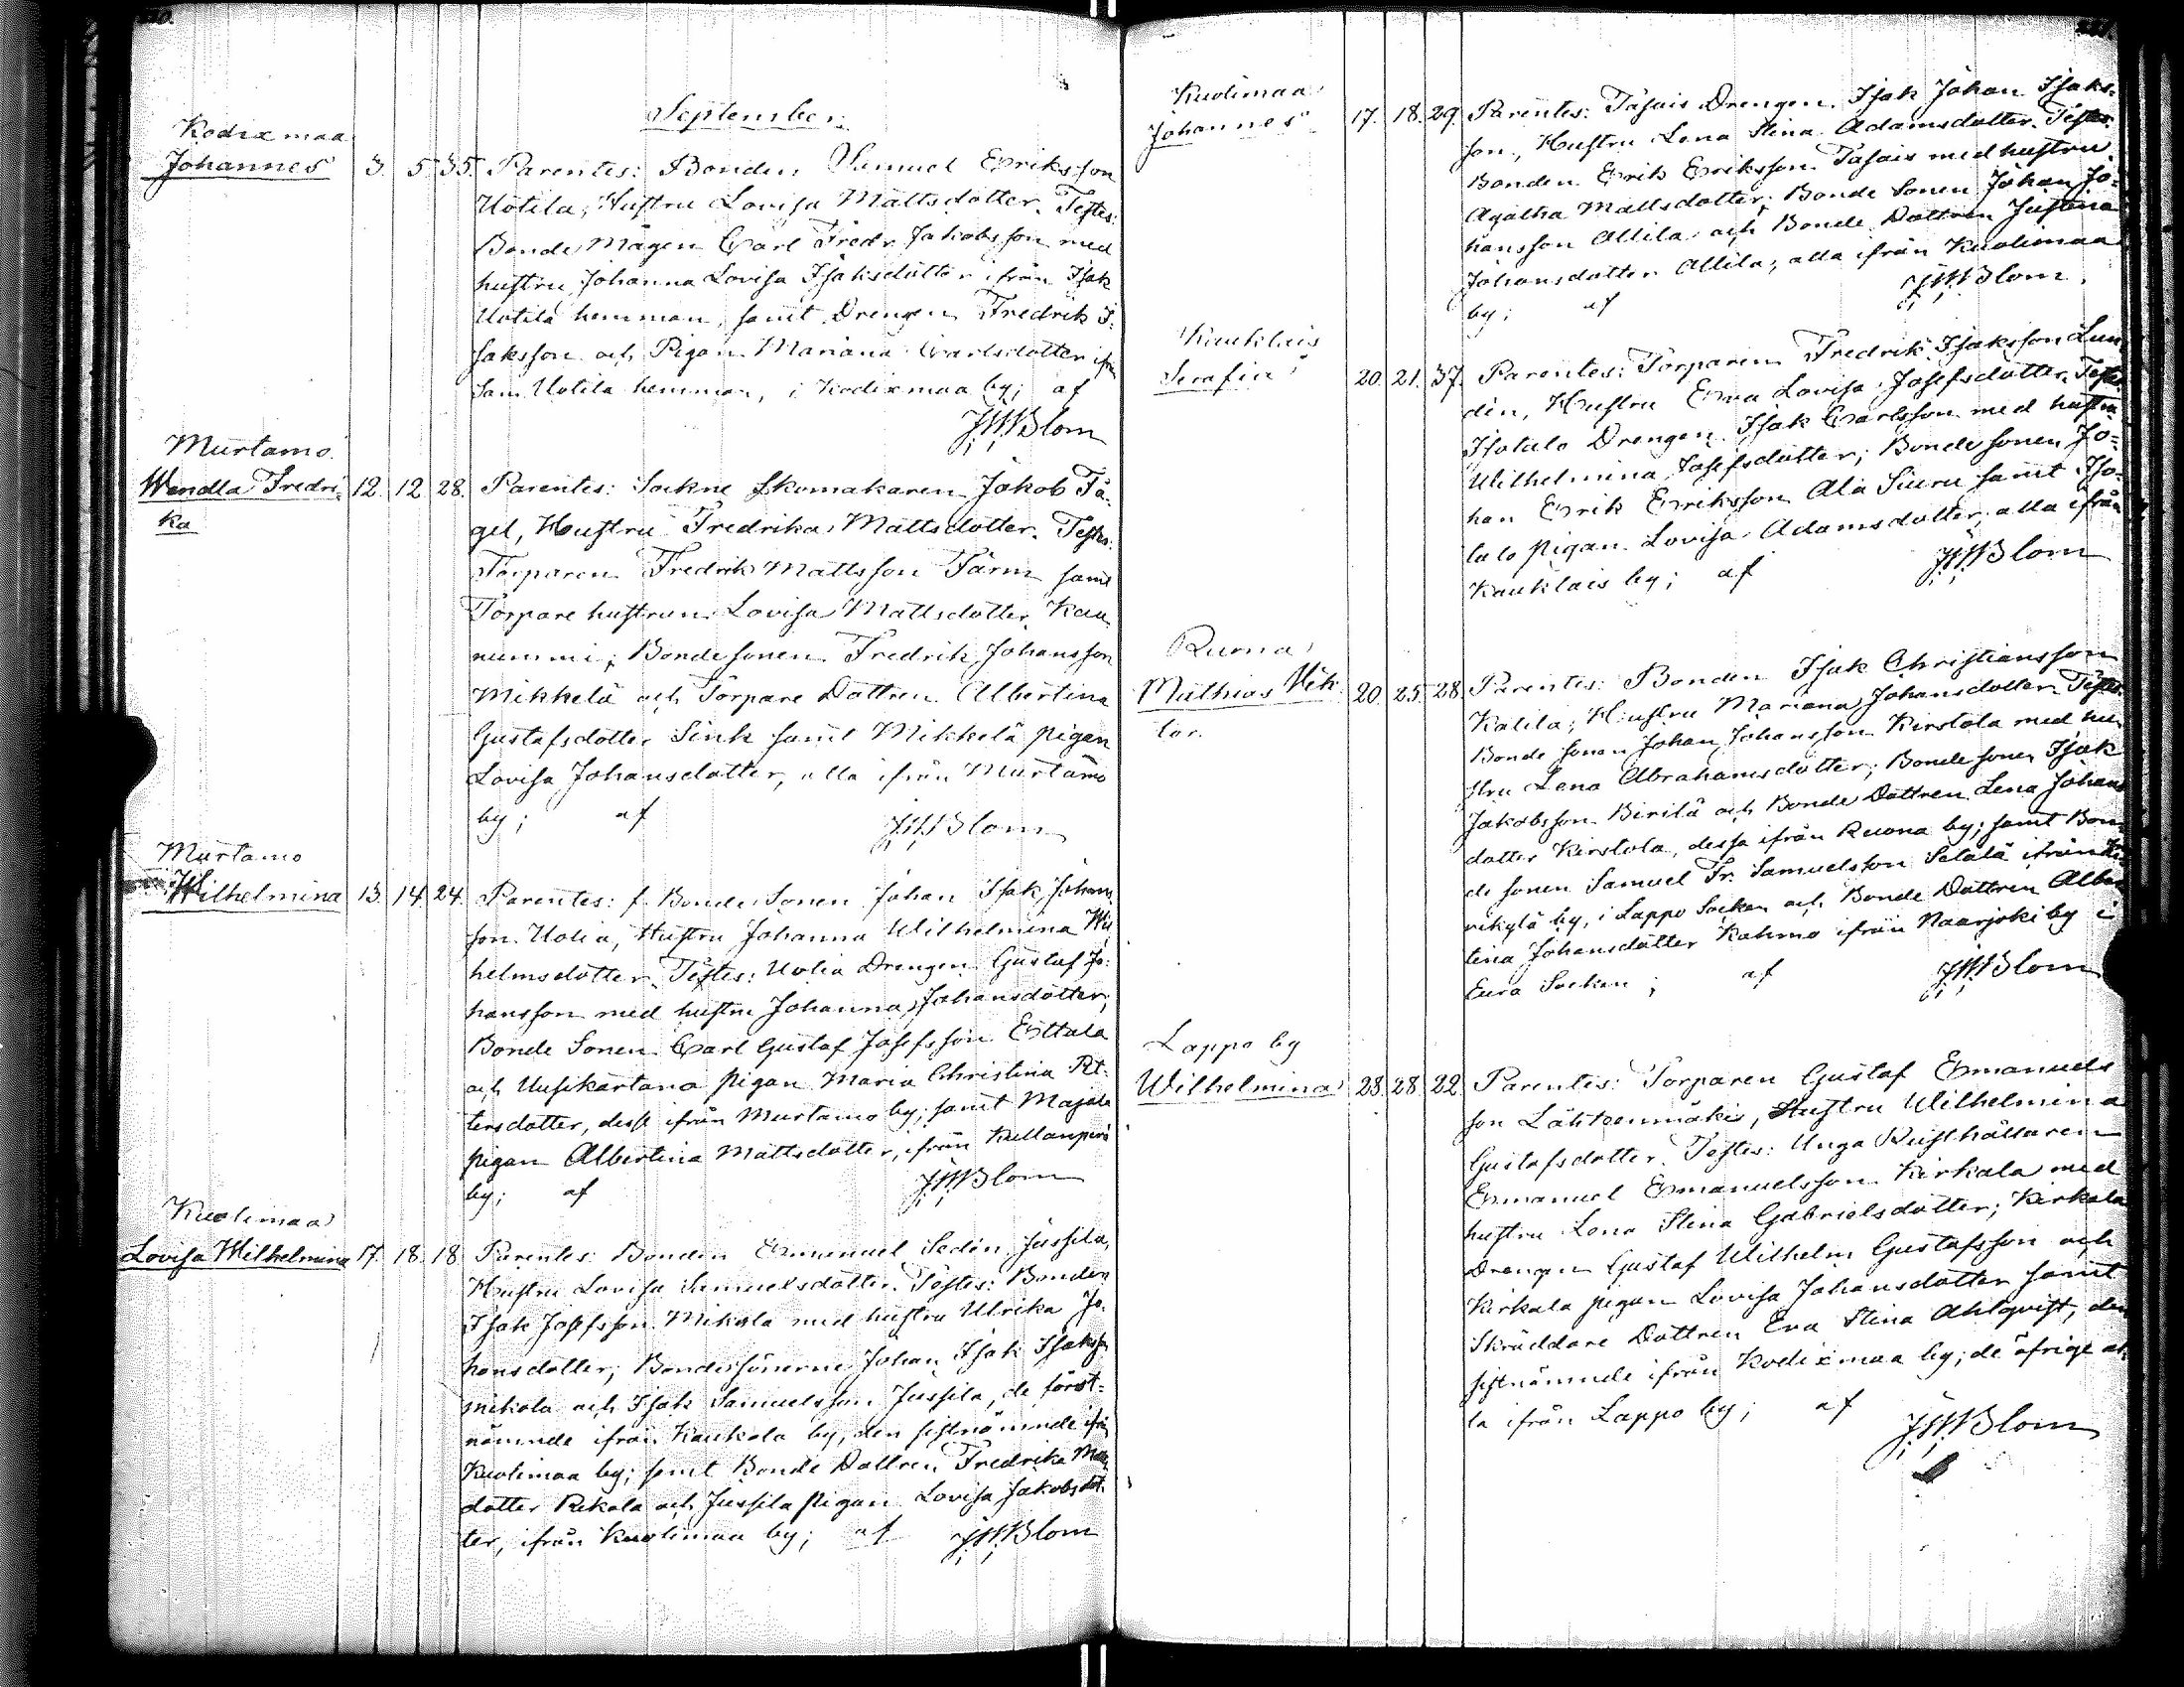 September.
Kodixmaa
Johannes 3. 5. 35. Parentes: Bonden Samuel Eriksson
Uotila, Hustru Lovisa Mattsdotter. Testes:
Bonde Mågen Carl Fredr. Jakobsson med
hustru Johanna Lovisa Isaksdotter ifrån Isak
Uotila hemman, samt Drengen Fredrik I-
saksson och Pigan Mariana Carlsdotter ifrån
Sam. Uotila hemman, i Kodixmaa by; af
JWBlom
Murtamo
Wendla Fredri- 12. 12 28. Parentes: Sockne Skomakaren Jakob Tå-
ka
gel, Hustru Fredrika Mattsdotter. Testes:
Torparen Fredrik Mattsson Färm samt
Torpare hustrun Lovisa Mattsdotter Kau-
nummi; Bondesonen Fredrik Johansson
Mikkelä och Torpare Dottren Albertina
Gustafsdotter Sink samt Mikkelä pigan
Lovisa Johansdotter, alla ifrån Murtamo
by; af JWBlom
Murtamo
Wilhelmina 13. 14. 24. Parentes: f. Bonde Sonen Johan Isak Johans-
son Uolia, Hustru Johanna Wilhelmina Wil-
helmsdotter. Testes: Uolia Drengen Gustaf Jo-
hansson med hustru Johanna Johansdotter;
Bonde Sonen Carl Gustaf Josefsson Erttala
och Uusikartano pigan Maria Christina Pet-
tersdotter, desse ifrån Murtamo by; samt Majala
pigan Albertina Mattsdotter, ifrån Kullanperä
by; af JWBlom
Kuolimaa
Lovisa Wilhelmina 17. 18. 18 Parentes: Bonden Emanuel Sedin Jussila,
Hustru Lovisa Samuelsdotter. Testes: Bonden
Isak Josefsson Mikola med hustru Ulrika Jo-
hansdotter; Bondesönerne Johan Isak Isaksson
Mikola och Isak Samuelsson Jussila, de först-
nämnde ifrån Kaukola by, den sistnämnde ifrån
Kuolimaa by; samt Bonde Dottren Fredrika Matts-
dotter Rekola och Jussila pigan Lovisa Jakobsdot-
ter, ifrån Kuolimaa by; af JWBlom
Kuolimaa
Johannes 17. 18. 29. Parentes: Tasais Drengen Isak Johan Isaks-
son, Hustru Lena Stina Adamsdotter. Testes:
Bonden Erik Eriksson Tasais med hustru
Agatha Mattsdotter; Bonde Sonen Johan Jo-
hansson Allila och Bonde Dottren Justina
Johansdotter Allila, alla ifrån Kuolimaa
by; af JWBlom.
Kauklais
Serafia 20. 21. 37. Parentes: Torparen Fredrik Isaksson Lun-
din, Hustru Erva Lovisa Josefsdotter. Testes:
Isotalo Drengen Isak Carlsson med hustru
Wilhelmina Josefsdotter; Bondesonen Jo-
han Erik Eriksson Ala Siuru samt Iso-
talo pigan Lovisa Adamsdotter, alla ifrån
Kauklais by; af JWBlom
Ruona
Mathias Vik- 20. 25. 28. Parentes: Bonden Isak Christiansson
tor.
Katila; Hustru Mariana Johansdotter. Testes:
Bonde sonen Johan Johansson Kirstola med hu-
stru Lena Abrahamsdotter; Bondesonen Isak
Jakobsson Birilä och Bonde Dottren Lena Johans-
dotter Kirstola, dessa ifrån Ruona by; samt Bon-
de sonen Samuel Fr. Samuelsson Setälä ifrån
rikylä by, i Lappo Socken och Bonde Dottren Alber-
tina Johansdotter Kahmo ifrån Naarjoki by i
Eura Socken; af JWBlom
Lappo by
Wilhelmina 28. 28. 22. Parentes: Torparen Gustaf Emanuels
son Lähteenmäki, Hustru Wilhelmina
Gustafsdotter. Testes: Unga Rusthållaren
Emanuel Emanuelsson Kirkola med
hustru Lena Stina Gabrielsdotter; Kirkola
Drengen Gustaf Wilhelm Gustafsson och
Kirkola pigan Lovisa Johansdotter samt
Skräddare Dottren Eva Stina Ahlqvist, den
sistnämnde ifrån Kodixmaa by; de öfrige al-
la ifrån Lappo by; af JWBlom